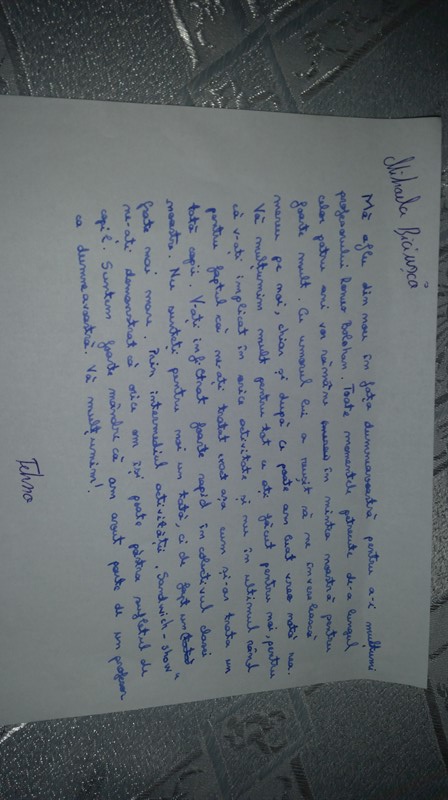 Mihaela Biciușcă
Mă aflu din nou în fața dumneavoastră pentru a-i mulțumi
profesorului Romeo Bolohan. Toate momentele petrecute de-a lungul
celor patru ani vor rămâne mereu în mintea noastră pentru
foarte mult. Cu umorul lui a reușit să ne înveselească
mereu pe noi, chiar și după ce poate am luat vreo notă rea.
Vă mulțumim mult pentru tot ce ați făcut pentru noi, pentru
că v-ați implicat în orice activitate și nu în ultimul rând
pentru faptul că ne-ați tratat exact așa cum și-ar trata un
tată copiii. V-ați infiltrat foarte rapid în colectivul clasei
noastre. Nu sunteți pentru noi un tată, ci de fapt un
frate mai mare. Prin intermediul activității „Sandwich-show"
ne-ați demonstrat că orice om își poate păstra sufletul de
copil. Suntem foarte mândri că am avut parte de un profesor
ca dumneavoastră. Vă mulțumim!
Tehno